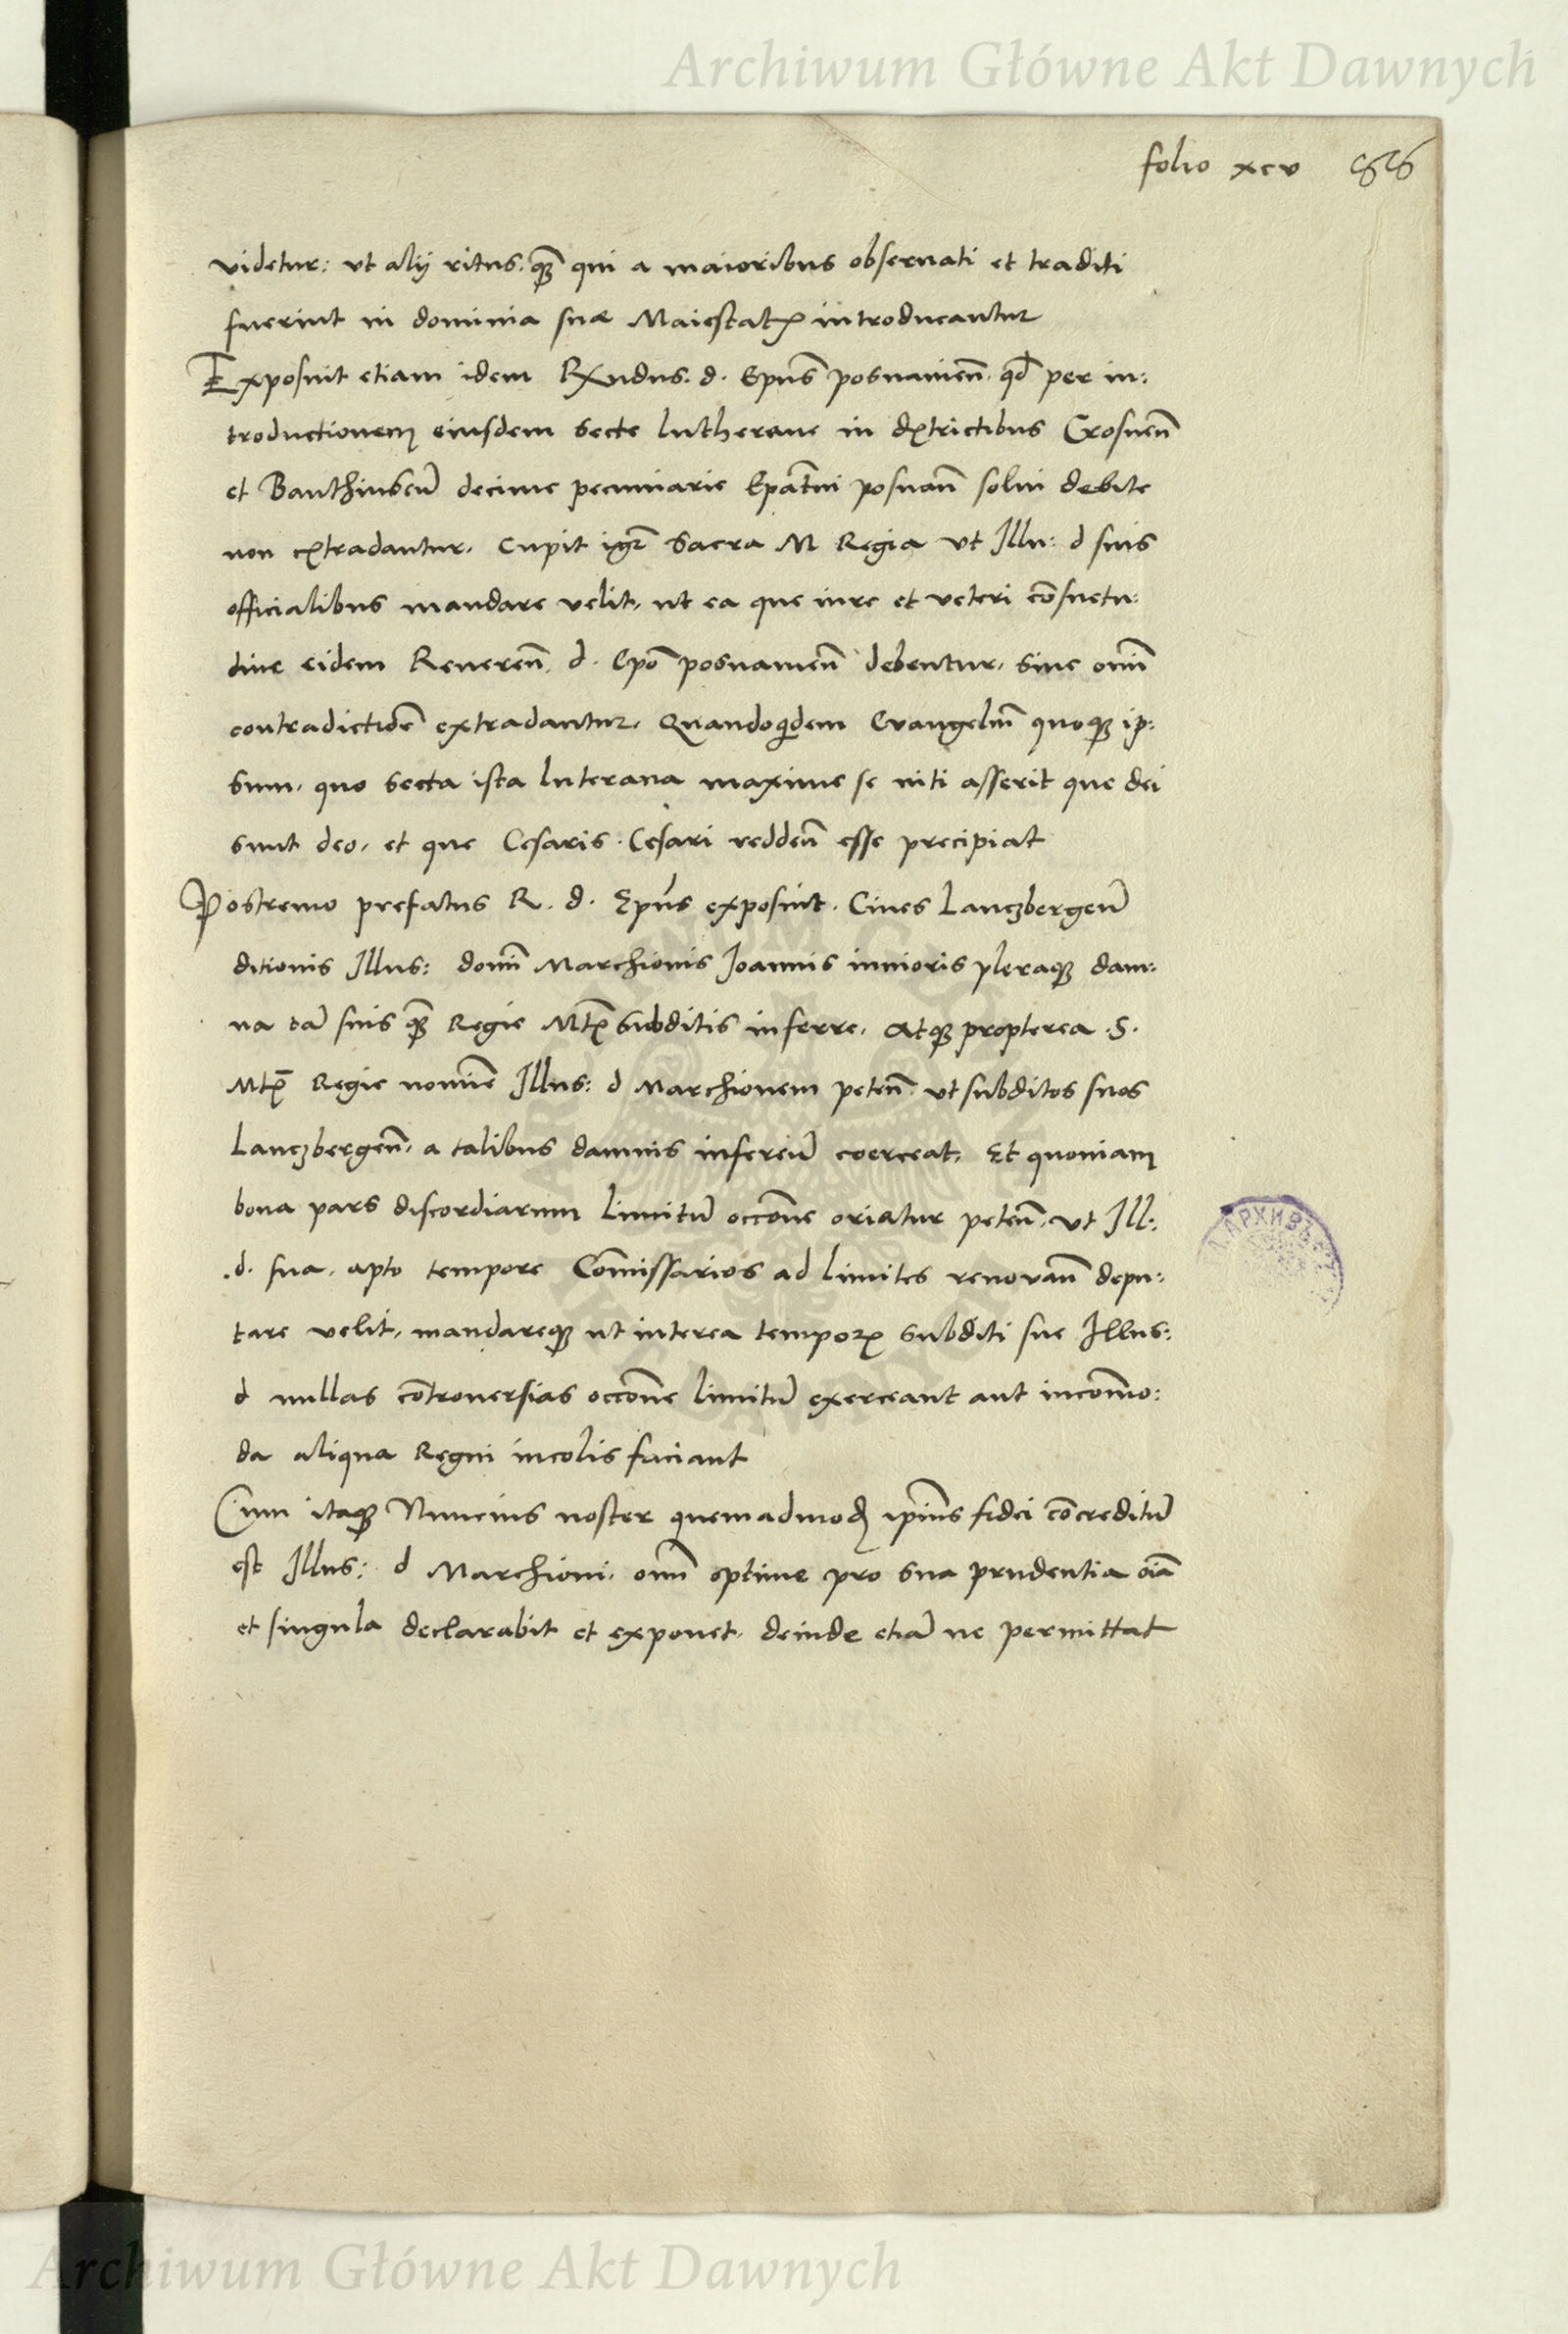 Archiwum Główne Akt Dawnych
folio xcv
videtur: ut alij ritus. q̃ꝫ qui a maioribus obseruati et traditi
fuerint in dominia suæ Maiestatꝭ introducantur
Exposuit etiam idem Rx̃ndus. d. Ep̃us posnanieñ. qđ per in:
troductionem eiusdem secte lutherane in dꝭtrictibus Crosneñ
et Banthinseñ decime pecuniarie Ep̃atui posnañ solui debite
non extradantur. Cupit igr̃ Sacra M Regia ut Illu: d suis
officialibus mandare velit, ut ea que iure et veteri cõsuetu:
dine eidem Revereñ. d. Ep̃o posnanieñ debentur, sine om̃i
contradictiõe extradantur. Quandoqͥdem Evangeliũ quoqꝫ ip:
sum, quo secta ista luterana maxime se niti asserit que dei
sunt deo, et que Cesaris. Cesari reddeñ esse precipiat
Postremo prefatus R. d. Ep̃us exposuit. Ciues Lanczbergeñ
ditionis Illus: domĩ Marchionis Joannis iunioris pleraqꝫ dam:
na tã suis q̃ꝫ Regie Mtꝭ subditis inferre, atqꝫ propterea .S.
Mtꝭ Regie nomĩe Illus: d Marchionem peteñ. ut subditos suos
Lanczbergeñ. a talibus damnis infereñ coerceat. Et quoniam
bona pars discordiarum limitũ occõne oriatur peteñ. ut Ill:
.d. sua. apto tempore Com̃issarios ad limites renovañ depu:
tare velit, mandareqꝫ ut interea temporꝭ subditi sue Illus:
d nullas cõtroversias occõne limitũ exerceant aut incom̃o:
da aliqua Regni incolis faciant
Cum itaqꝫ Nuncius noster quemadmodꝫ ip̃ius fidei cõcreditũ
est Illus: d Marchioni. om̃i optime pro sua prudentia oĩa
et singula declarabit et exponet. deinde etiã ne permittat
Archiwum Główne Akt Dawnych